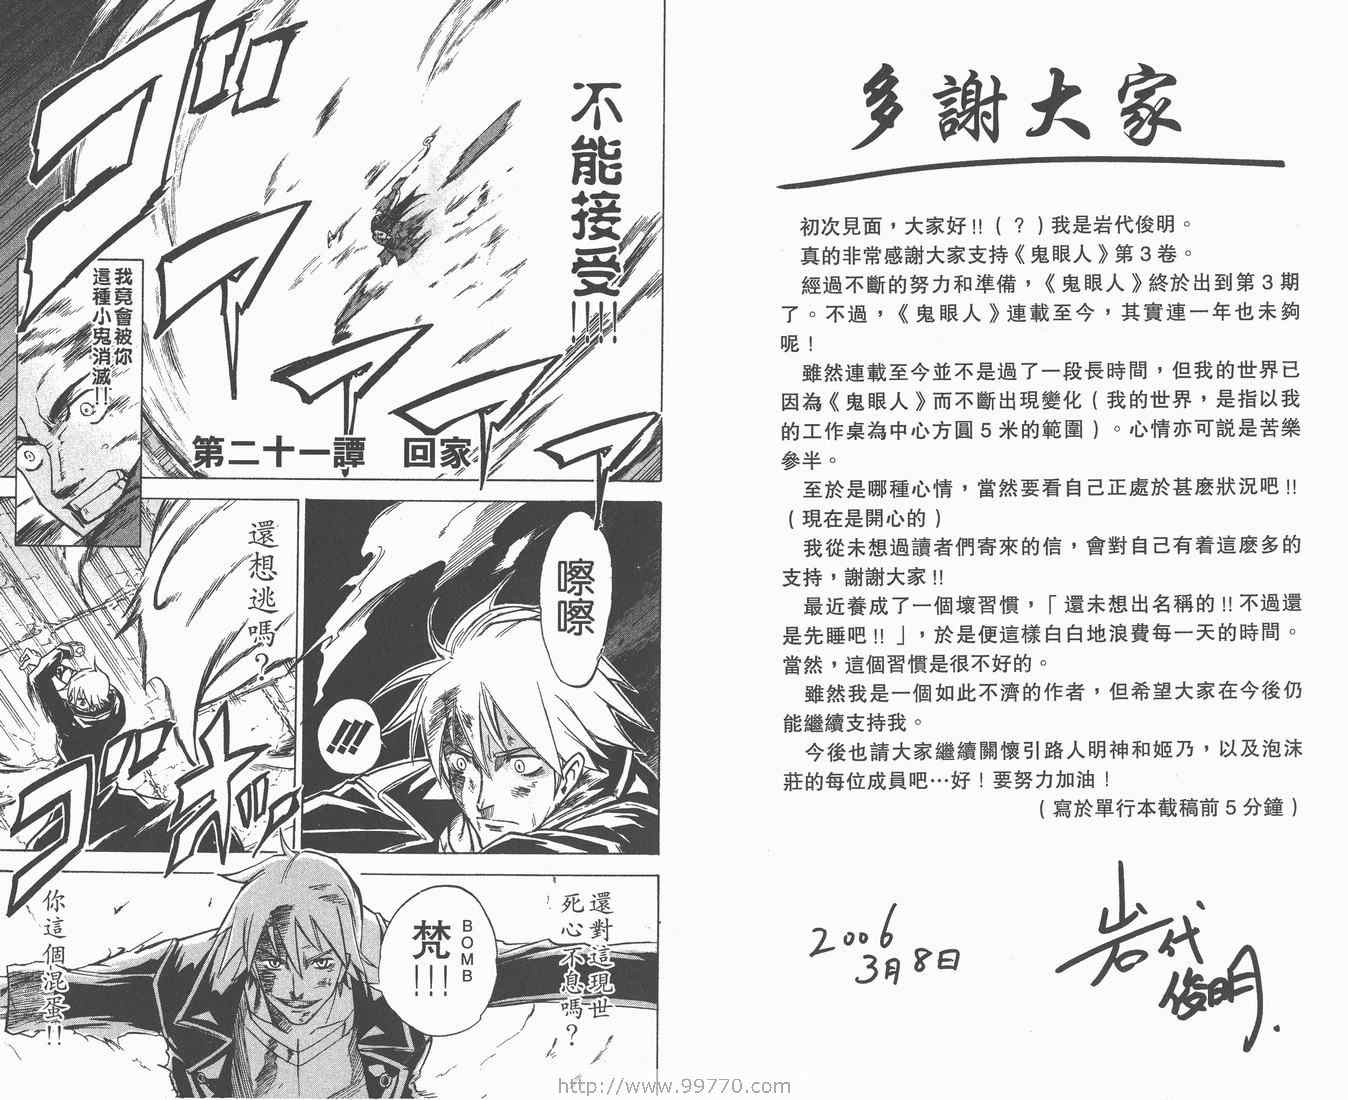 多謝大家
初次見面，大家好!!（？）我是岩代俊明。
真的非常感謝大家支持《鬼眼人》第3卷。
經過不斷的努力和準備，《鬼眼人》終於出到第3期
了。不過，《鬼眼人》連載至今，其實連一年也未夠
呢！
雖然連載至今並不是過了一段長時間，但我的世界已
因為《鬼眼人》而不斷出現變化（我的世界，是指以我
的工作桌為中心方圓5米的範圍）。心情亦可說是苦樂
參半。
至於是哪種心情，當然要看自己正處於甚麼狀況吧!!
（現在是開心的）
我從未想過讀者們寄來的信，會對自己有着這麼多的
支持，謝謝大家!!
最近養成了一個壞習慣，「還未想出名稱的!!不過還
是先睡吧!!」，於是便這樣白白地浪費每一天的時間。
當然，這個習慣是很不好的。
雖然我是一個如此不濟的作者，但希望大家在今後仍
能繼續支持我。
今後也請大家繼續關懷引路人明神和姬乃，以及泡沫
莊的每位成員吧…好！要努力加油！
（寫於單行本截稿前5分鐘）
2006
3月8日
岩代
俊明.
不能接受!!!!
我竟會被你
這種小鬼消滅!!
第二十一譚　回家
嚓嚓
!!!
還想逃嗎？
還對這現世
死心不息嗎？
BOMB
梵!!!
你這個混蛋!!
http://www.99770.com